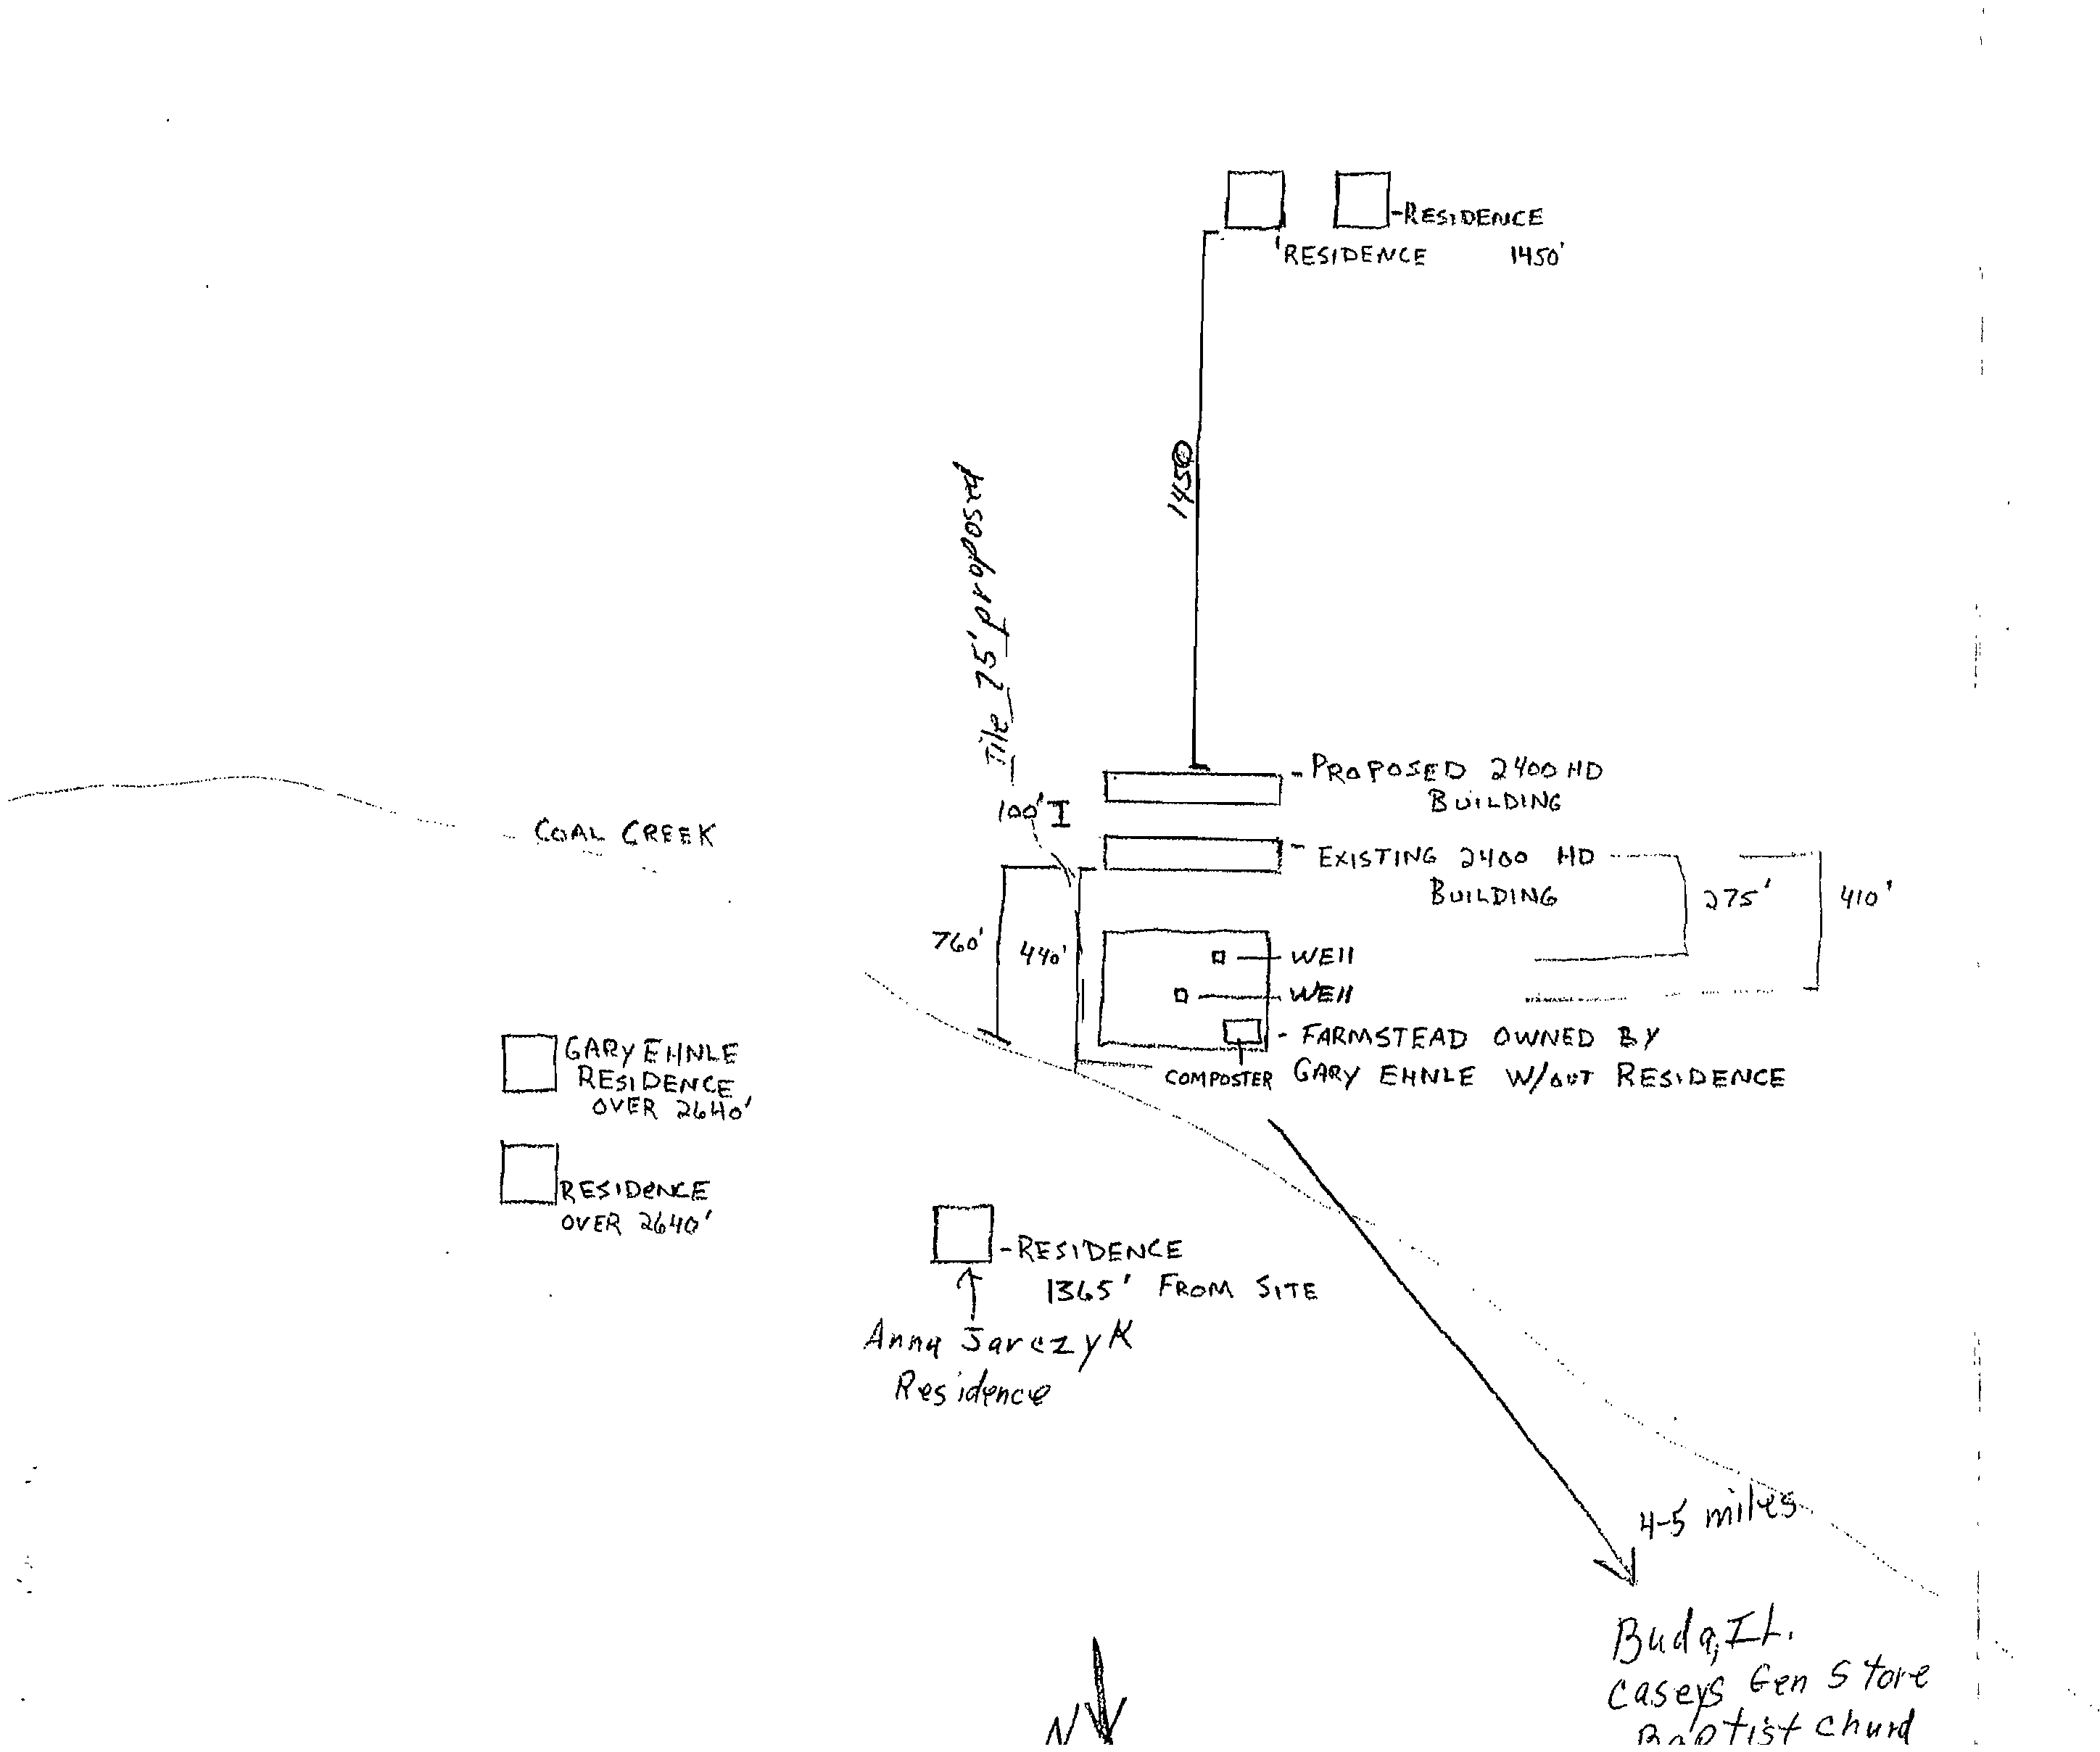 -RESIDENCE
RESIDENCE 1450'
1450
Tile 75' proposed
-PROPOSED 2400 HD
BUILDING
100'
COAL CREEK
-EXISTING 2400 HD
BUILDING
275'
410'
760'
440'
WEll
WEll
-FARMSTEAD OWNED BY
GARY EHNLE W/OUT RESIDENCE
COMPOSTER
GARY EHNLE
RESIDENCE
OVER 2640'
RESIDENCE
OVER 2640'
-RESIDENCE
1365' FROM SITE
Anna Jarczyk
Residence
4-5 miles
Buda, IL.
Caseys Gen Store
Baptist Churd
N